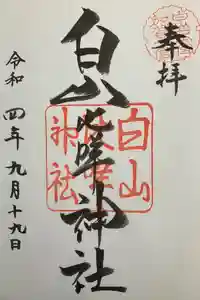 奉拝
白山比咩神社
白山
比咩
神社
令和四年九月十九日